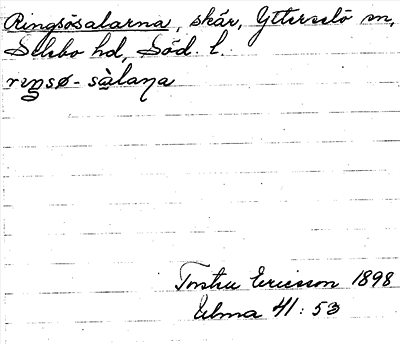 Ringsösalarna, skär, Ytterselö sn,
Selebo hd, Söd. l.
rıŋsø-sàlaṇa
Torsten Ericsson 1898
Ulma 41:53